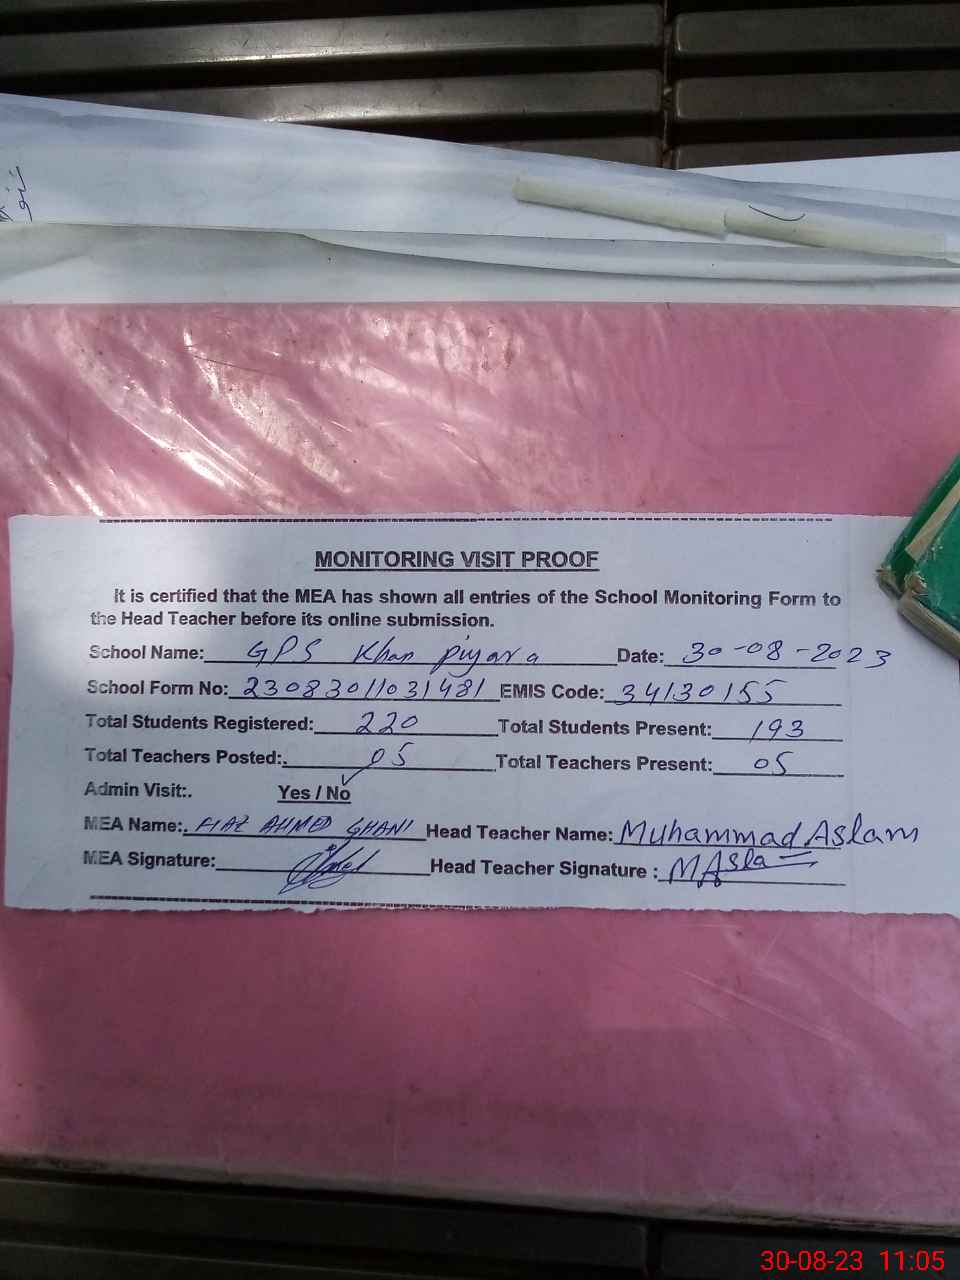 MONITORING VISIT PROOF
It is certified that the MEA has shown all entries of the School Monitoring Form to
the Head Teacher before its online submission.
School Name: GPS Khan Piyara Date: 30-08-2023
School Form No: 23083011031481 EMIS Code: 34130155
Total Students Registered: 220 Total Students Present: 193
Total Teachers Posted:. 05 Total Teachers Present: 05
Admin Visit:. Yes / No ✓
MEA Name:. FIAZ AHMED GHANI Head Teacher Name: Muhammad Aslam
MEA Signature: Head Teacher Signature : MAsla
30-08-23 11:05